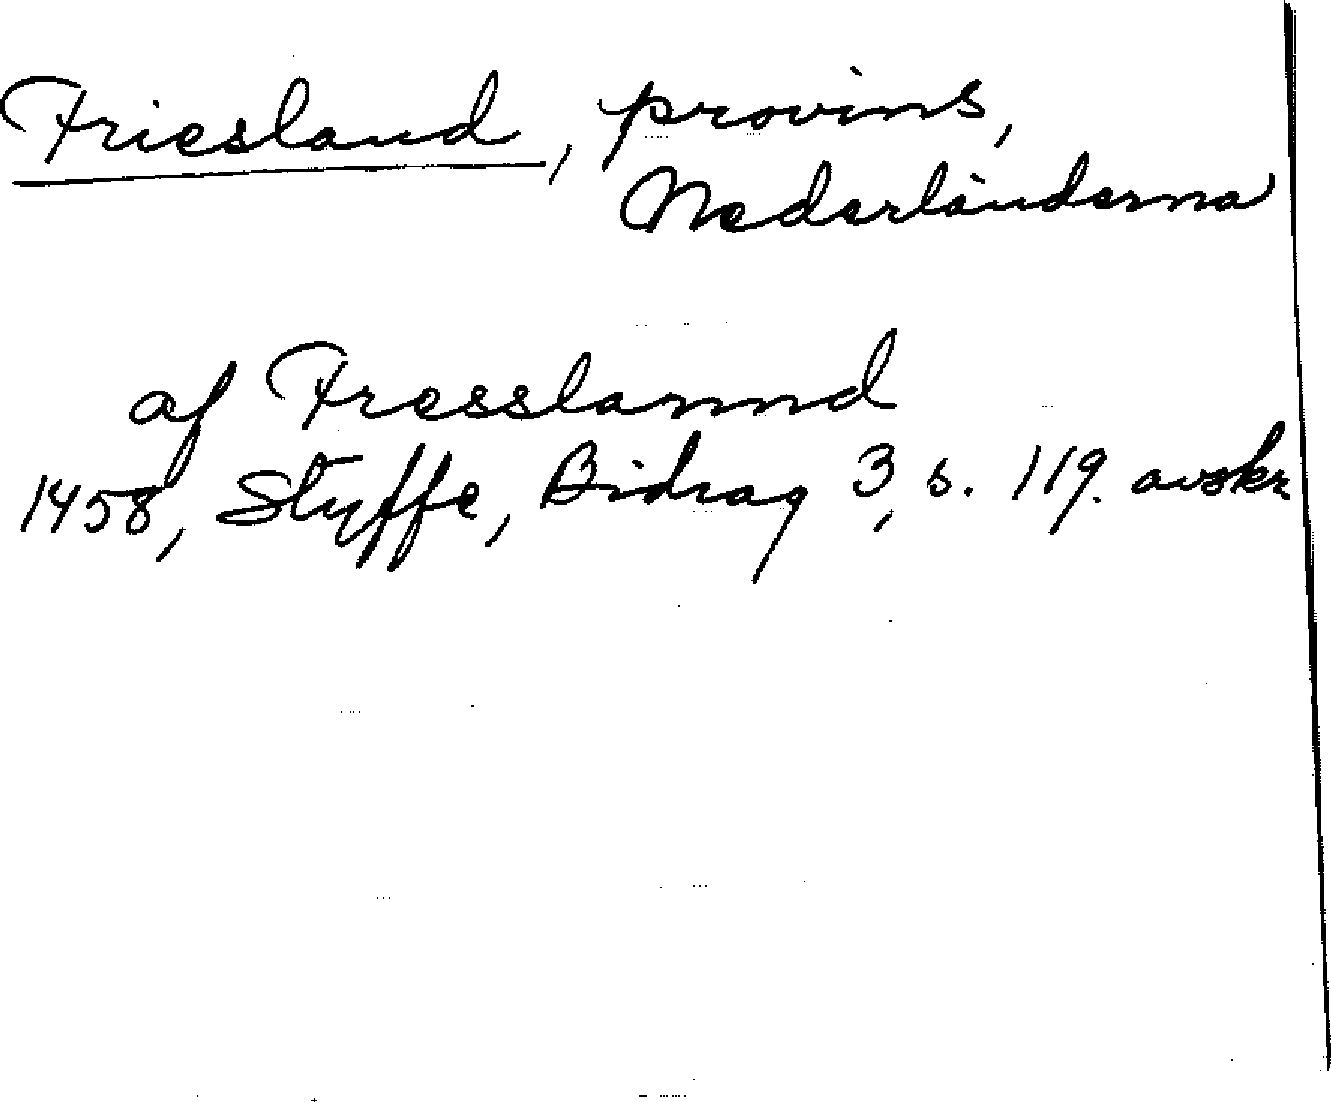 Friesland, provins,
Nederländerna
af Fresslannd
1458, Styffe, Bidrag 3, s. 119. avskr